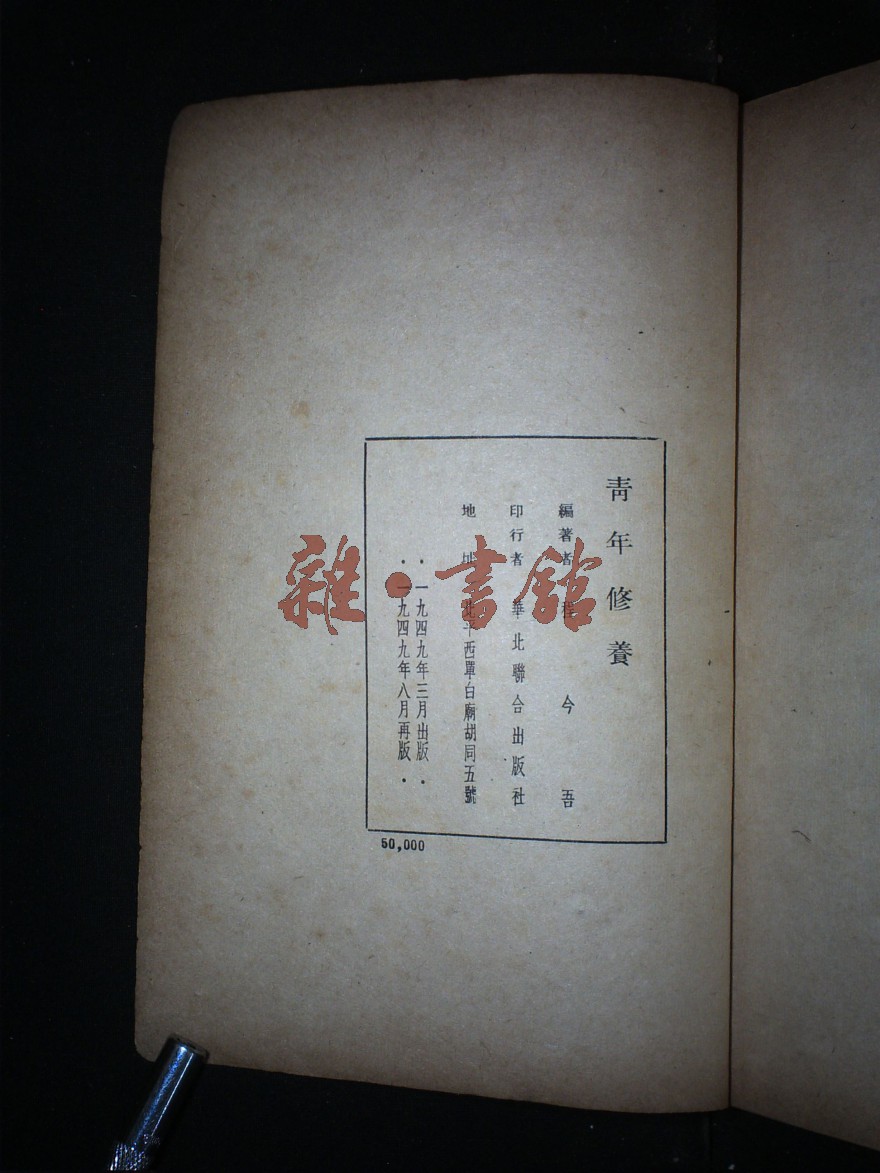 青年修養
編著者 程今吾
印行者 華北聯合出版社
地址 北平西單白廟胡同五號
·一九四九年三月出版·
·一九四九年八月再版·
50,000
雜·書館